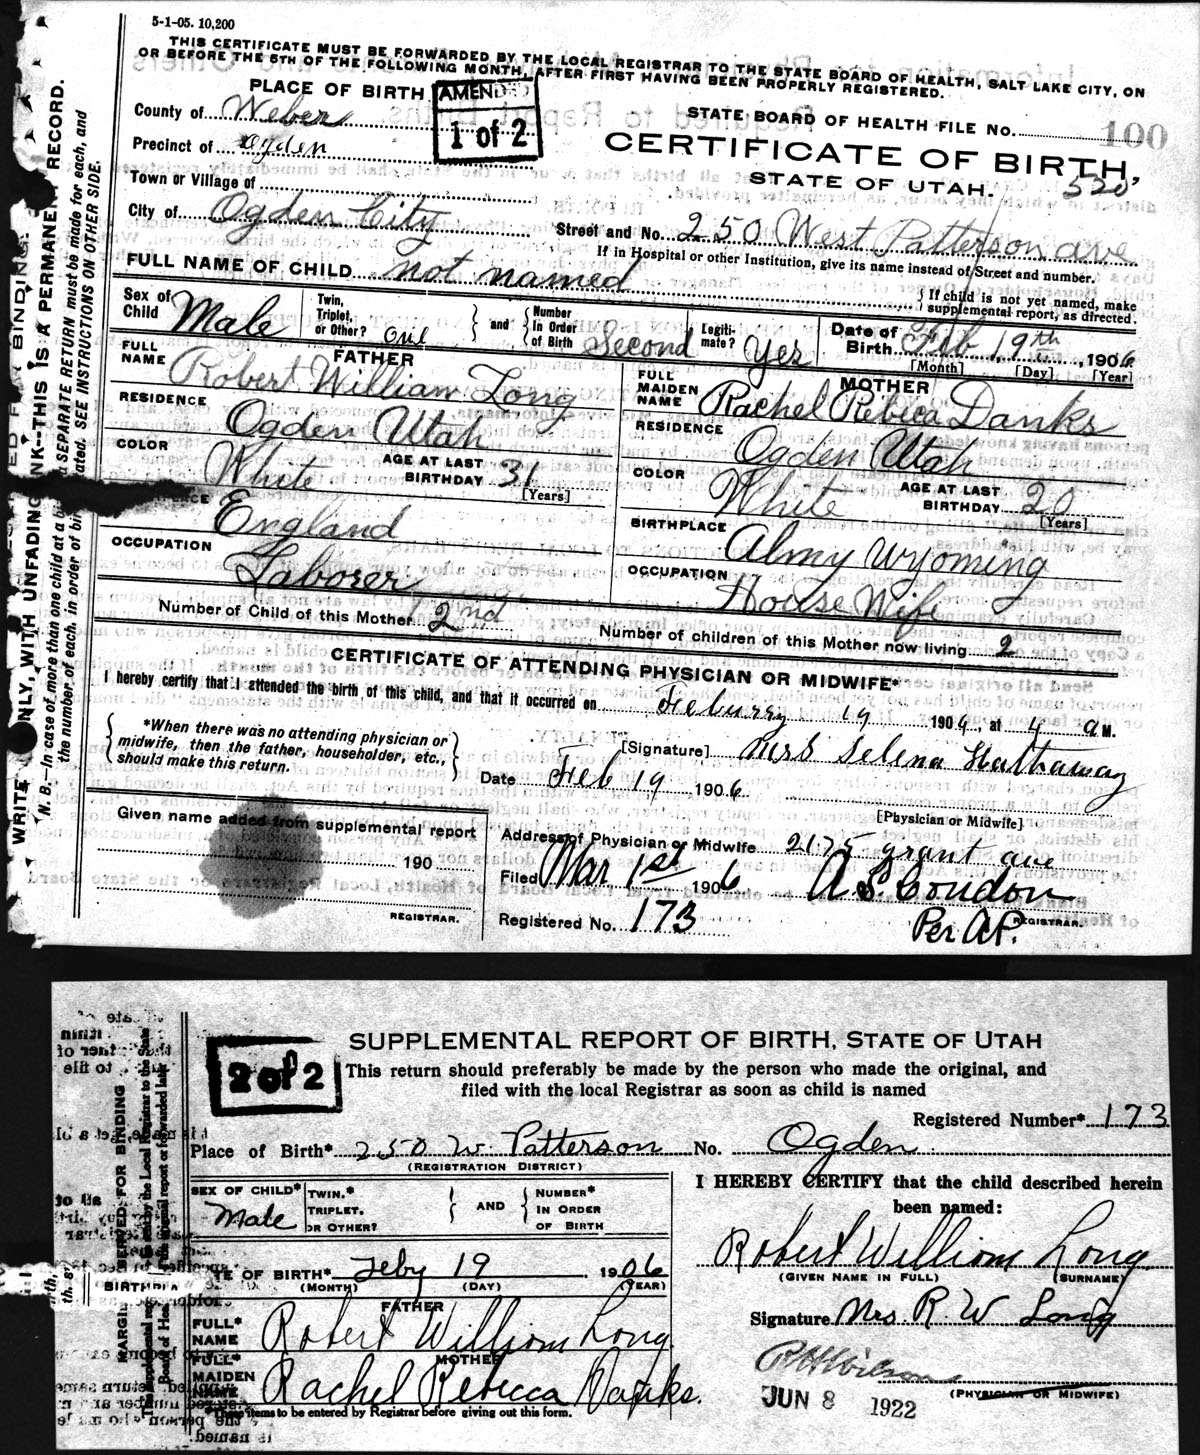 5-1-05. 10,200
THIS CERTIFICATE MUST BE FORWARDED BY THE LOCAL REGISTRAR TO THE STATE BOARD OF HEALTH, SALT LAKE CITY, ON
OR BEFORE THE 5TH OF THE FOLLOWING MONTH, AFTER FIRST HAVING BEEN PROPERLY REGISTERED.
PLACE OF BIRTH
AMENDED
1 of 2
STATE BOARD OF HEALTH FILE No. 100
County of Weber
CERTIFICATE OF BIRTH,
Precinct of Ogden
STATE OF UTAH. 520
Town or Village of
City of Ogden City
Street and No. 250 West Patterson ave
If in Hospital or other Institution, give its name instead of Street and number.
FULL NAME OF CHILD not named
If child is not yet named, make
supplemental report, as directed.
Sex of Child Male
Twin, Triplet, or Other? One
and
Number In Order of Birth Second
Legiti-mate? Yes
Date of Birth Feb 19th, 1906
[Month] [Day] [Year]
FATHER
FULL NAME Robert William Long
MOTHER
FULL MAIDEN NAME Rachel Rebica Danks
RESIDENCE Ogden Utah
RESIDENCE Ogden Utah
COLOR White
AGE AT LAST BIRTHDAY 31
[Years]
COLOR White
AGE AT LAST BIRTHDAY 20
[Years]
England
BIRTHPLACE Almy Wyoming
OCCUPATION Laborer
OCCUPATION House Wife
Number of Child of this Mother 2nd
Number of children of this Mother now living 2
CERTIFICATE OF ATTENDING PHYSICIAN OR MIDWIFE*
I hereby certify that I attended the birth of this child, and that it occurred on Feburry 19 1906, at 4 a M.
*When there was no attending physician or
midwife, then the father, householder, etc.,
should make this return.
[Signature] Mrs Selena Hathaway
Date Feb 19 1906
[Physician or Midwife]
Given name added from supplemental report
190
REGISTRAR.
Address of Physician or Midwife 2175 grant ave
Filed Mar 1st 1906
A S. Condon
REGISTRAR.
Registered No. 173
Per A.P.
WRITE ONLY, WITH UNFADING INK--THIS IS A PERMANENT RECORD.
N. B.--In case of more than one child at a
SEPARATE RETURN must be made for each, and
the number of each, in order of
SEE INSTRUCTIONS ON OTHER SIDE.
2 of 2
SUPPLEMENTAL REPORT OF BIRTH, STATE OF UTAH
This return should preferably be made by the person who made the original, and
filed with the local Registrar as soon as child is named
Registered Number* 173
Place of Birth* 250 W. Patterson No. Ogden
(REGISTRATION DISTRICT)
SEX OF CHILD* Male
TWIN,* TRIPLET, OR OTHER?
AND
NUMBER* IN ORDER OF BIRTH
I HEREBY CERTIFY that the child described herein
been named:
Robert William Long
(GIVEN NAME IN FULL) (SURNAME)
DATE OF BIRTH* Feby 19 1906
(MONTH) (DAY) (YEAR)
FATHER
FULL* NAME Robert William Long
Signature Mrs. R. W Long
MOTHER
FULL* MAIDEN NAME Rachel Rebecca Danks.
(PHYSICIAN OR MIDWIFE)
JUN 8 1922
*These items to be entered by Registrar before giving out this form.